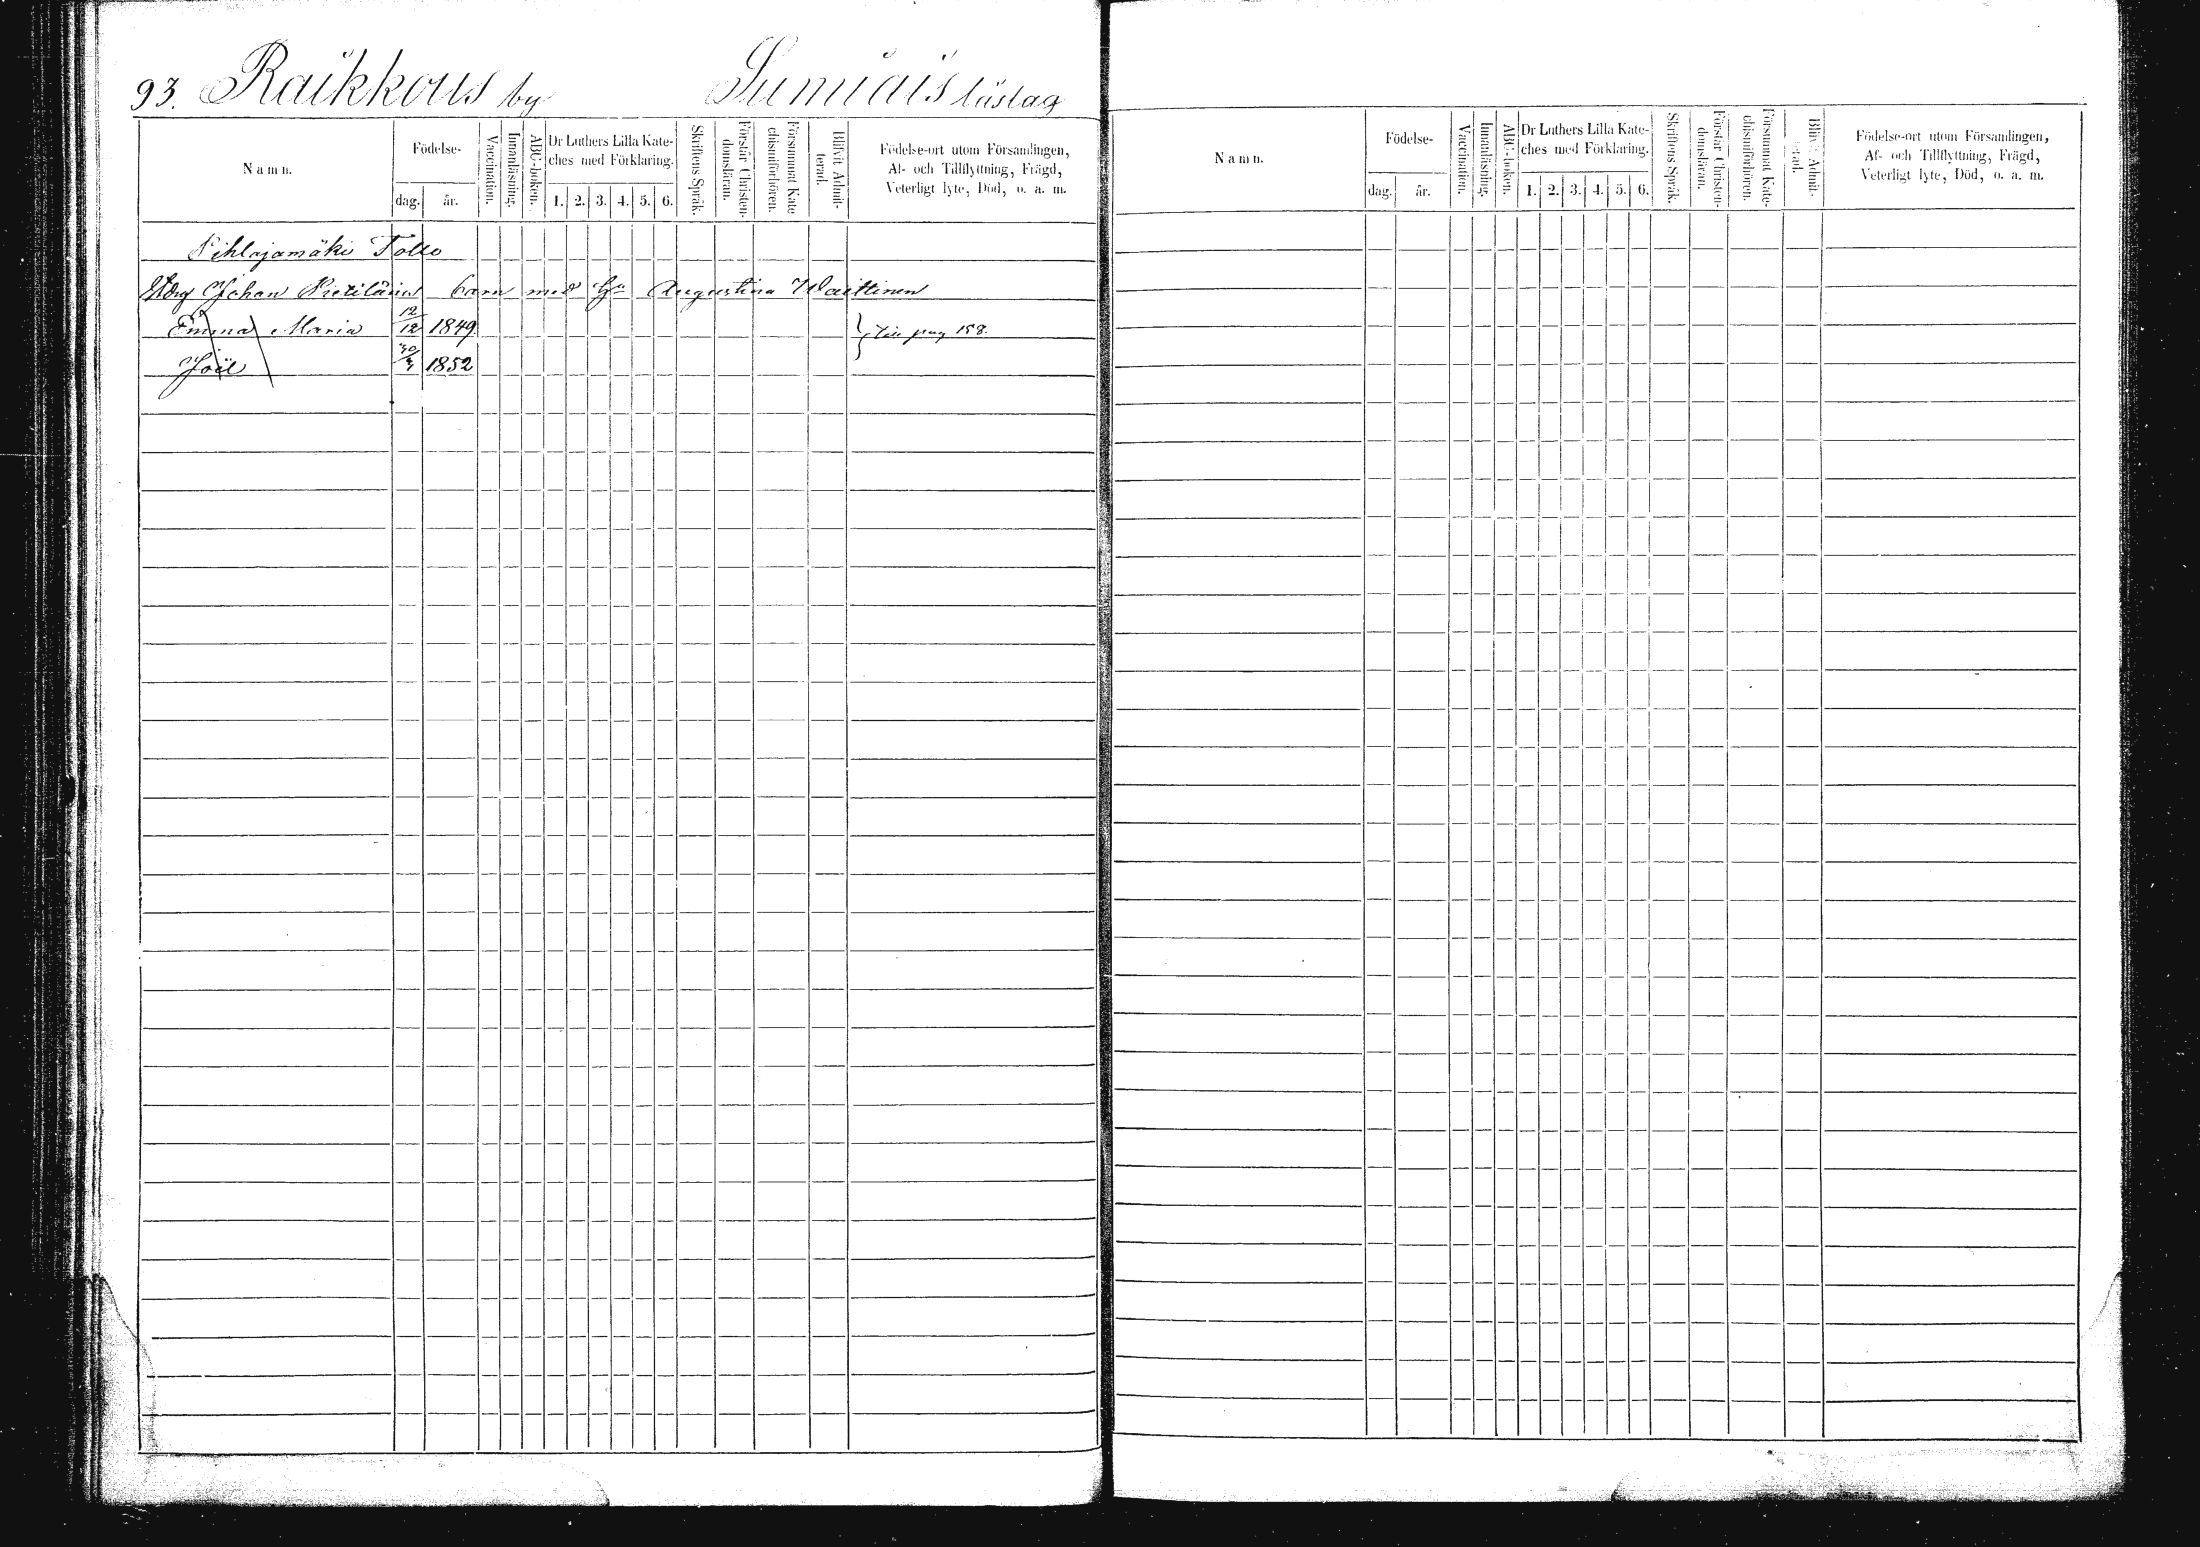 93. Raikkous by Sumiais läslag
Namn.
Födelse-
dag.
år.
Vaccination.
Innanläsning.
ABC-boken.
Dr Luthers Lilla Kate-
ches med Förklaring.
1. 2. 3. 4. 5. 6.
Skriftens Språk.
Förstår Christen-
domsläran.
Försummat Kate
chismiförhören.
Blifvit Admit-
terad.
Födelse-ort utom Församlingen,
Af- och Tillflyttning, Frägd,
Veterligt lyte, Död, o. a. m.
Pihlajamäki
Johan barn med Augustina Waittinen
Emma Maria 12/12 1849
pag 158.
Joël 1852
Namn.
Födelse-
dag.
år.
Vaccination.
Innanläsning.
ABC-boken.
Dr Luthers Lilla Kate-
ches med Förklaring.
1. 2. 3. 4. 5. 6.
Skriftens Språk.
Förstår Christen-
domsläran.
Försummat Kate-
chismiförhören.
Admit-
Födelse-ort utom Församlingen,
Af- och Tillflyttning, Frägd,
Veterligt lyte, Död, o. a. m.